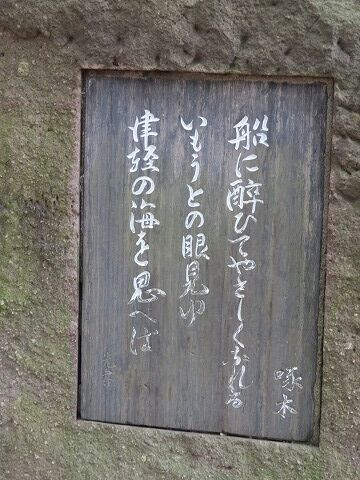 船に酔ひてやさしくなれる
いもうとの眼見ゆ
津軽の海を思へば
啄木